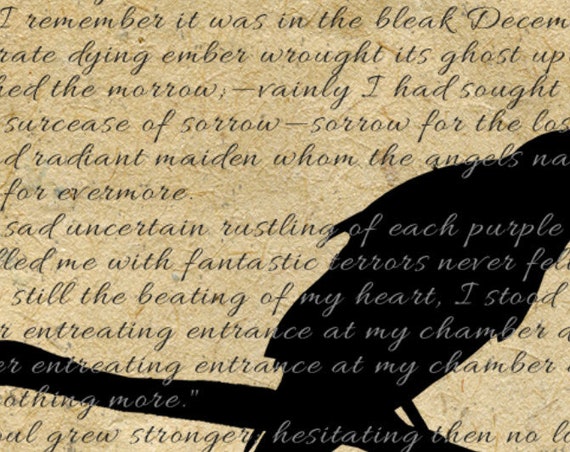 I remember it was in the bleak Decem
rate dying ember wrought its ghost up
hed the morrow;—vainly I had sought
surcease of sorrow—sorrow for the los
d radiant maiden whom the angels na
for evermore.
sad uncertain rustling of each purple
lled me with fantastic terrors never fel
still the beating of my heart, I stood
r entreating entrance at my chamber d
er entreating entrance at my chamber
nothing more."
oul grew stronger; hesitating then no lo